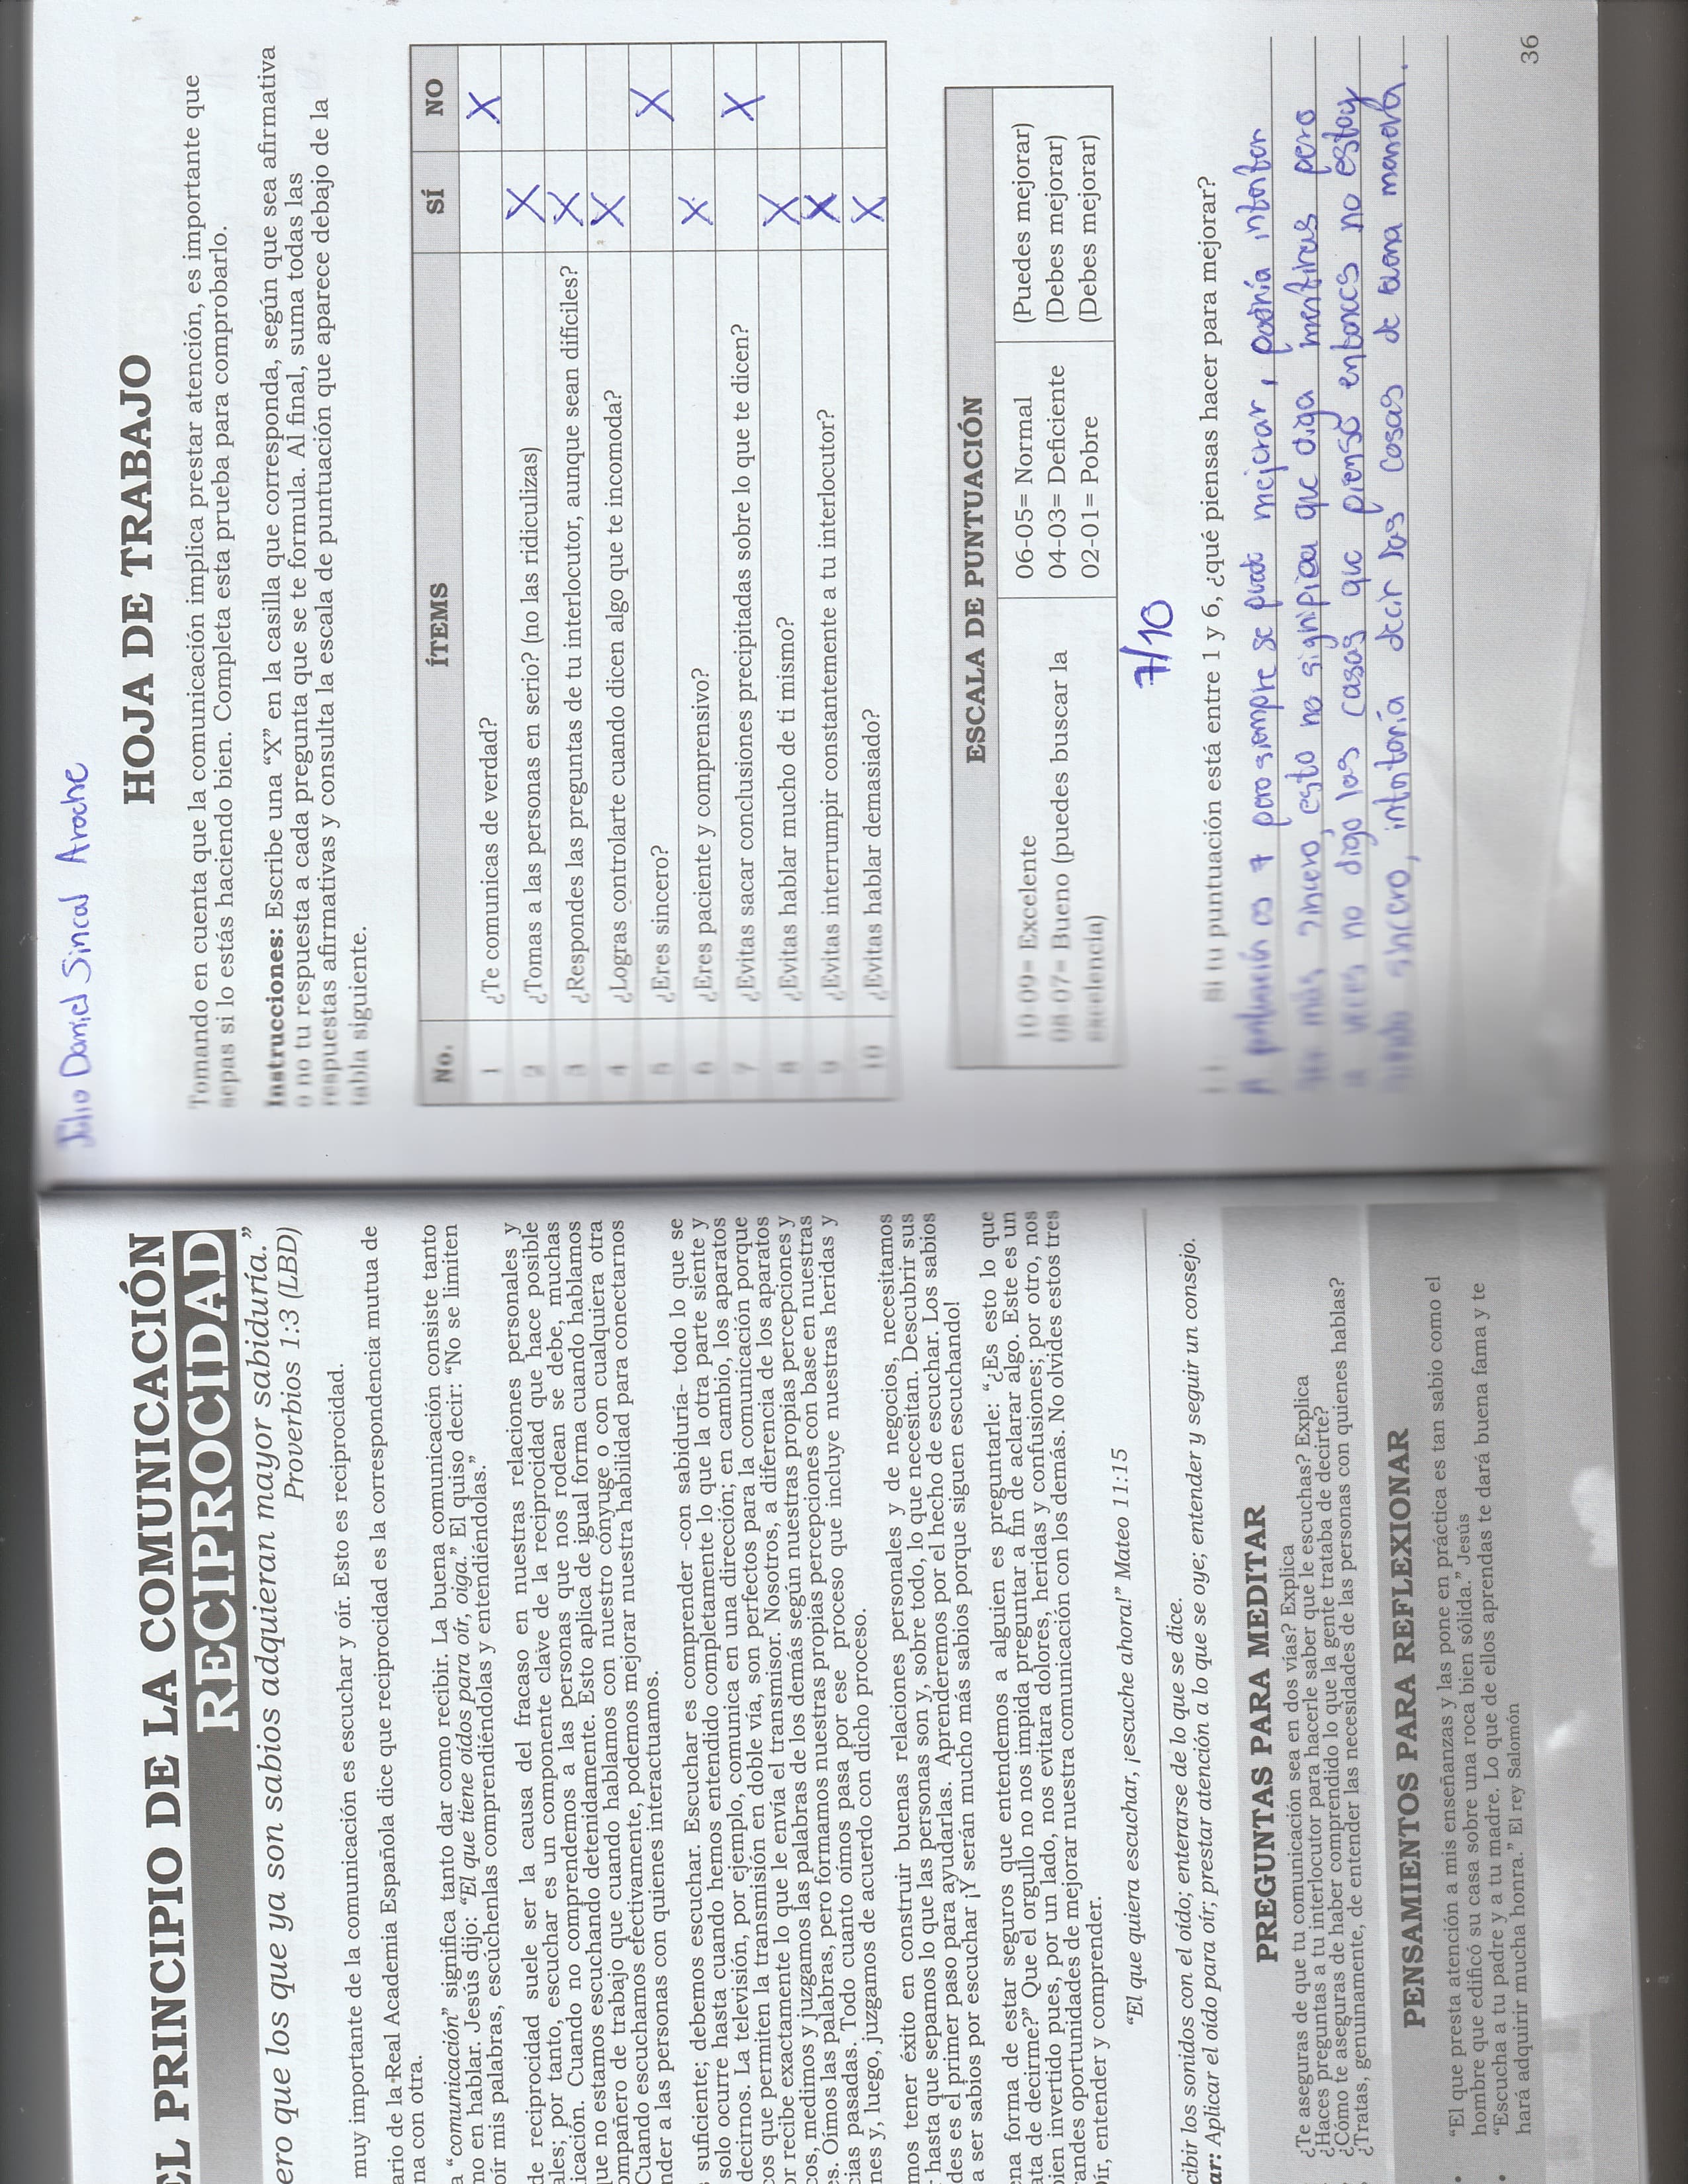 EL PRINCIPIO DE LA COMUNICACIÓN
RECIPROCIDAD
ero que los que ya son sabios adquieran mayor sabiduría.”
Proverbios 1:3 (LBD)
muy importante de la comunicación es escuchar y oír. Esto es reciprocidad.
ario de la Real Academia Española dice que reciprocidad es la correspondencia mutua de
na con otra.
a “comunicación” significa tanto dar como recibir. La buena comunicación consiste tanto
mo en hablar. Jesús dijo: “El que tiene oídos para oír, oiga.” El quiso decir: “No se limiten
oír mis palabras, escúchenlas comprendiéndolas y entendiéndolas.”
de reciprocidad suele ser la causa del fracaso en nuestras relaciones personales y
ales; por tanto, escuchar es un componente clave de la reciprocidad que hace posible
icación. Cuando no comprendemos a las personas que nos rodean se debe, muchas
que no estamos escuchando detenidamente. Esto aplica de igual forma cuando hablamos
ompañero de trabajo que cuando hablamos con nuestro cónyuge o con cualquiera otra
Cuando escuchamos efectivamente, podemos mejorar nuestra habilidad para conectarnos
nder a las personas con quienes interactuamos.
suficiente; debemos escuchar. Escuchar es comprender -con sabiduría- todo lo que se
solo ocurre hasta cuando hemos entendido completamente lo que la otra parte siente y
decirnos. La televisión, por ejemplo, comunica en una dirección; en cambio, los aparatos
cos que permiten la transmisión en doble vía, son perfectos para la comunicación porque
or recibe exactamente lo que le envía el transmisor. Nosotros, a diferencia de los aparatos
cos, medimos y juzgamos las palabras de los demás según nuestras propias percepciones y
es. Oímos las palabras, pero formamos nuestras propias percepciones con base en nuestras
cias pasadas. Todo cuanto oímos pasa por ese proceso que incluye nuestras heridas y
nes y, luego, juzgamos de acuerdo con dicho proceso.
mos tener éxito en construir buenas relaciones personales y de negocios, necesitamos
r hasta que sepamos lo que las personas son y, sobre todo, lo que necesitan. Descubrir sus
des es el primer paso para ayudarlas. Aprenderemos por el hecho de escuchar. Los sabios
a ser sabios por escuchar ¡Y serán mucho más sabios porque siguen escuchando!
ena forma de estar seguros que entendemos a alguien es preguntarle: “¿Es esto lo que
ata de decirme?” Que el orgullo no nos impida preguntar a fin de aclarar algo. Este es un
ien invertido pues, por un lado, nos evitara dolores, heridas y confusiones; por otro, nos
randes oportunidades de mejorar nuestra comunicación con los demás. No olvides estos tres
ír, entender y comprender.
“El que quiera escuchar, ¡escuche ahora!” Mateo 11:15
cibir los sonidos con el oído; enterarse de lo que se dice.
ar: Aplicar el oído para oír; prestar atención a lo que se oye; entender y seguir un consejo.
PREGUNTAS PARA MEDITAR
¿Te aseguras de que tu comunicación sea en dos vías? Explica
¿Haces preguntas a tu interlocutor para hacerle saber que le escuchas? Explica
¿Cómo te aseguras de haber comprendido lo que la gente trataba de decirte?
¿Tratas, genuinamente, de entender las necesidades de las personas con quienes hablas?
PENSAMIENTOS PARA REFLEXIONAR
• “El que presta atención a mis enseñanzas y las pone en práctica es tan sabio como el
hombre que edificó su casa sobre una roca bien sólida.” Jesús
• “Escucha a tu padre y a tu madre. Lo que de ellos aprendas te dará buena fama y te
hará adquirir mucha honra.” El rey Salomón
Julio Daniel Sincal Aroche
HOJA DE TRABAJO
Tomando en cuenta que la comunicación implica prestar atención, es importante que
sepas si lo estás haciendo bien. Completa esta prueba para comprobarlo.
Instrucciones: Escribe una “X” en la casilla que corresponda, según que sea afirmativa
o no tu respuesta a cada pregunta que se te formula. Al final, suma todas las
respuestas afirmativas y consulta la escala de puntuación que aparece debajo de la
tabla siguiente.
No. ÍTEMS SÍ NO
1 ¿Te comunicas de verdad? X
2 ¿Tomas a las personas en serio? (no las ridiculizas) X
3 ¿Respondes las preguntas de tu interlocutor, aunque sean difíciles? X
4 ¿Logras controlarte cuando dicen algo que te incomoda? X
5 ¿Eres sincero? X
6 ¿Eres paciente y comprensivo? X
7 ¿Evitas sacar conclusiones precipitadas sobre lo que te dicen? X
8 ¿Evitas hablar mucho de ti mismo? X
9 ¿Evitas interrumpir constantemente a tu interlocutor? X
10 ¿Evitas hablar demasiado? X
ESCALA DE PUNTUACIÓN
10-09= Excelente 06-05= Normal (Puedes mejorar)
08-07= Bueno (puedes buscar la 04-03= Deficiente (Debes mejorar)
excelencia) 02-01= Pobre (Debes mejorar)
7/10
Si tu puntuación está entre 1 y 6, ¿qué piensas hacer para mejorar?
puntuación es 7 pero siempre se puede mejorar, podría intentar
ser más sincero, esto no significa que diga mentiras pero
a veces no digo las cosas que pienso entonces no estoy
siendo sincero, intentaría decir las cosas de buena manera.
36